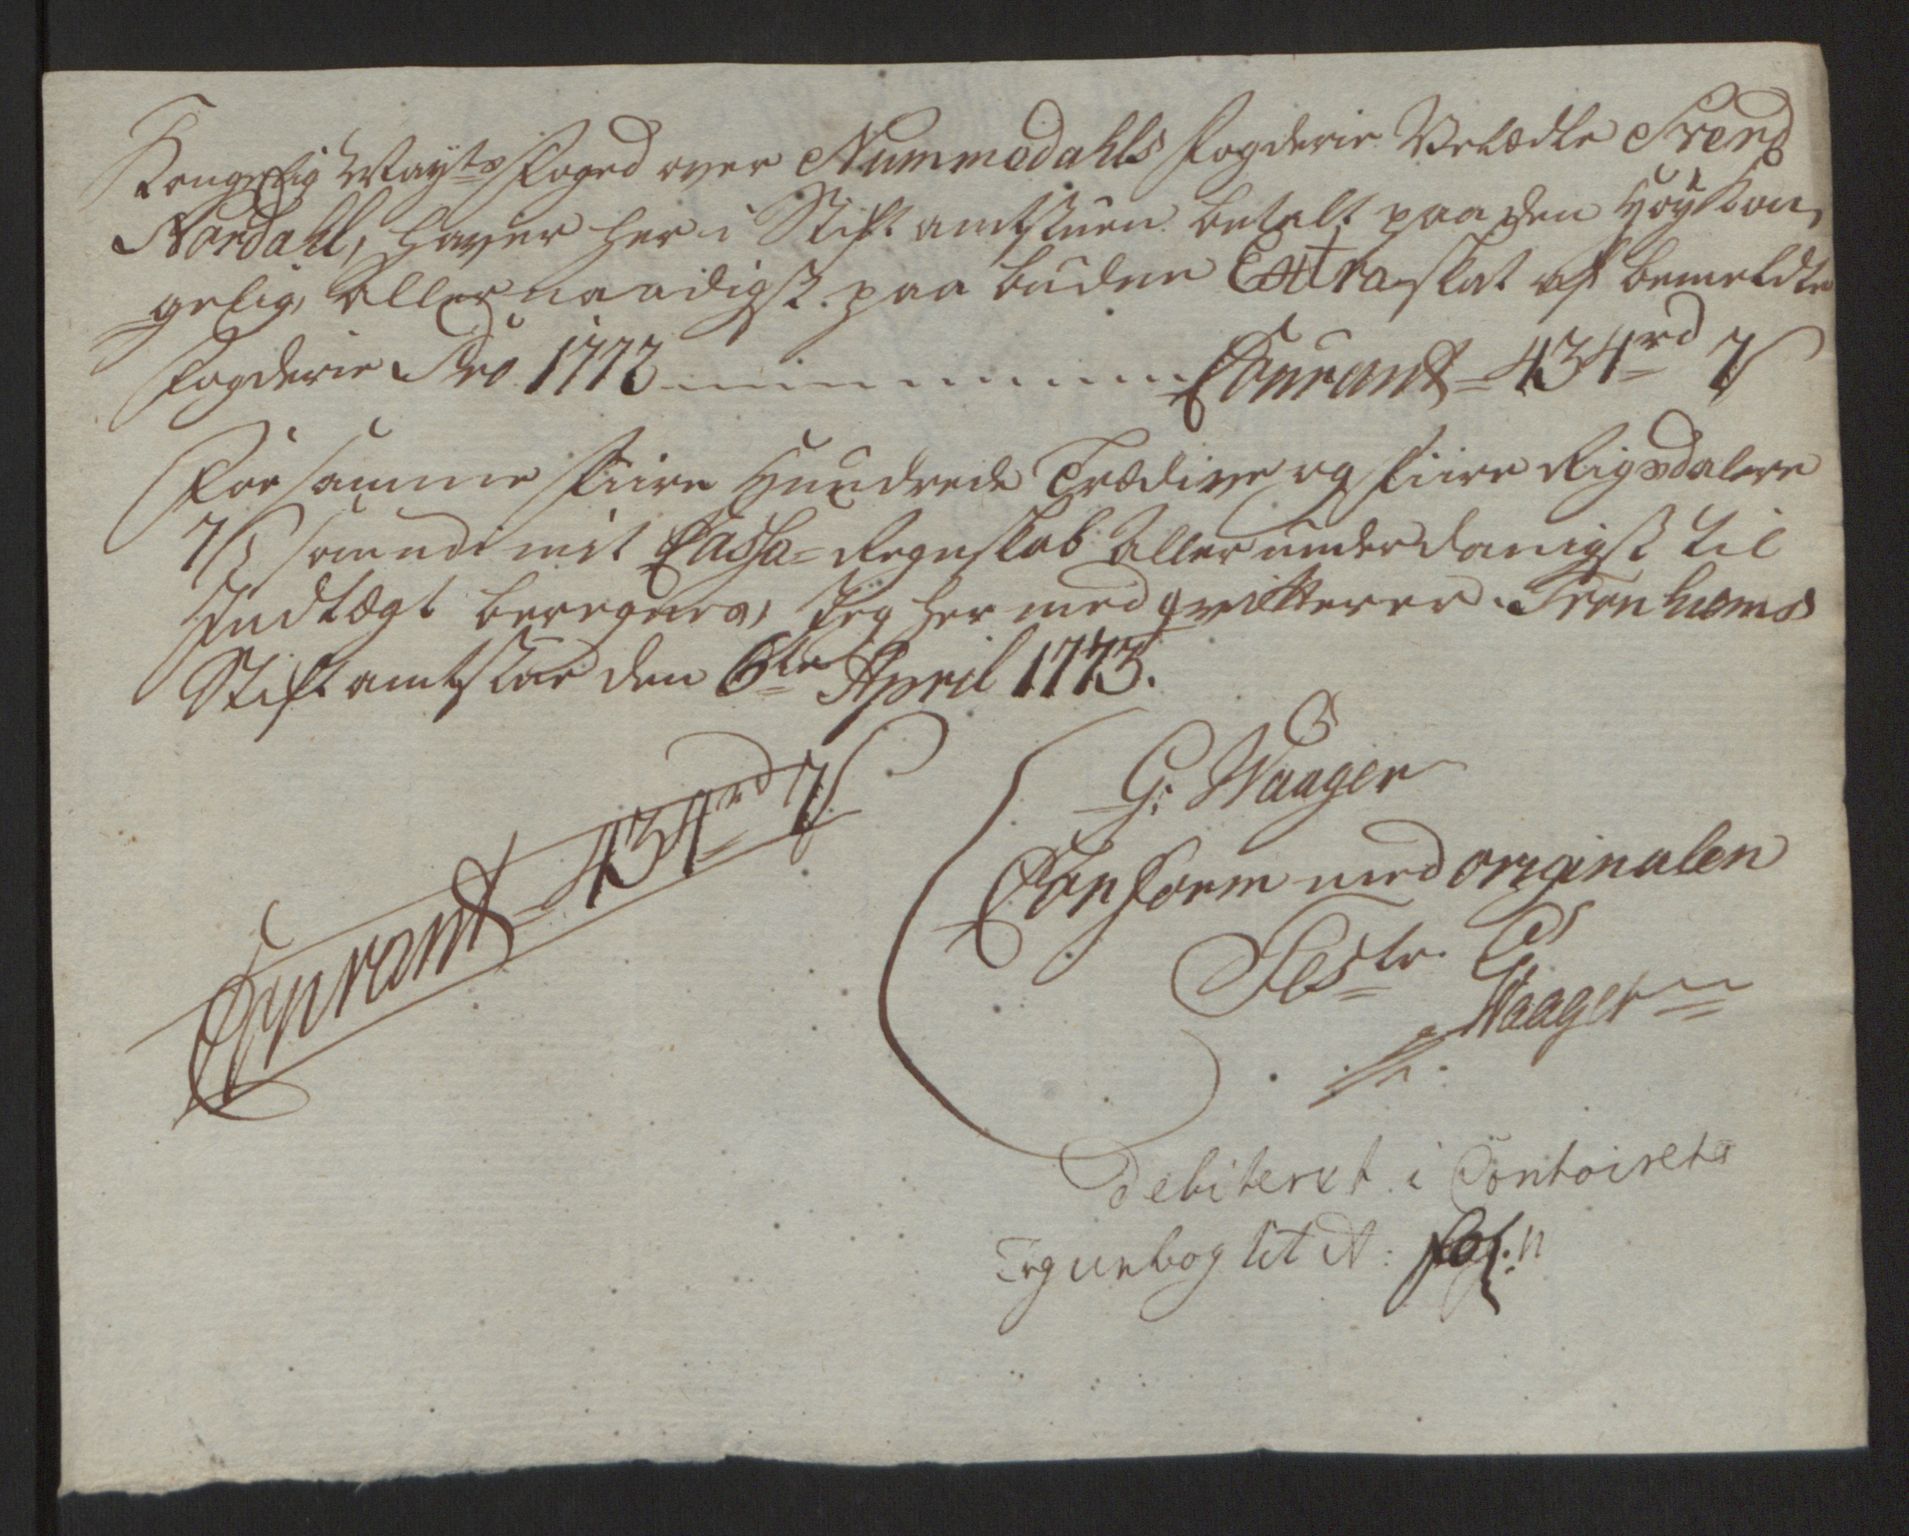 Kongelig Mayts Foged over Nummedahls Fogderie Velædle Svend
Nordahl, haver her i Stiftamtstuen betalt paa den Høy Kon,
gelig, allernaadigst paabudne Extraskat af bemeldte
Fogderie Pro 1772 Courant = 434rd
For samme Fiire Hundrede Trædive og Fiire Rigsdalere
som udi mit Cassa= Regnskab allerunderdanigst til
Indtægt beregnes, Jeg her med qvitterer. Tronhiems
Stiftamtstue den 6te April 1773.
Courant = 434rd
G: Waager
Conform med originalen
Test. G
Waager
Debiteret i Contoirets
bog Lit A: fol: 11